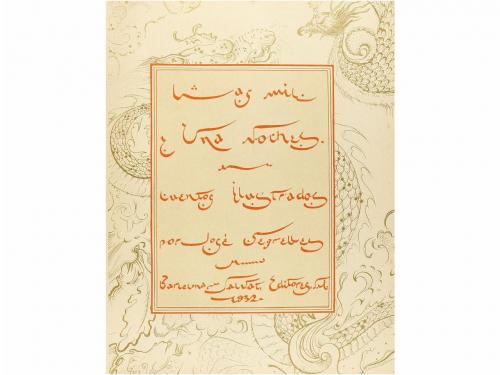 Las mil
y Una Noches.
cuentos ilustrados
por José Segrelles
Barcelona - Salvat, Editores, S.A.
1932.